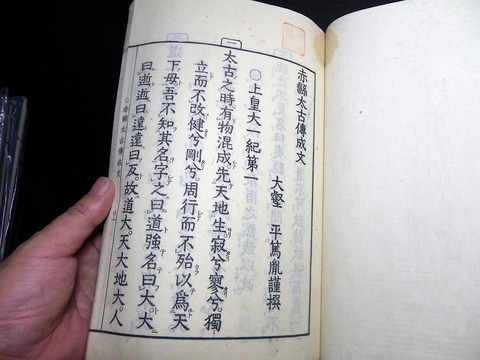 赤縣太古傳成文
大壑 平篤胤謹撰
上皇大一紀第一
一 太古之時有物混成先天地生寂兮寥兮獨
立而不改健兮剛兮周行而不殆以爲天
下母吾不知其名字之曰道強名曰大大
曰逝逝曰遠遠曰反故道大天大地大人
赤縣太古傳成文